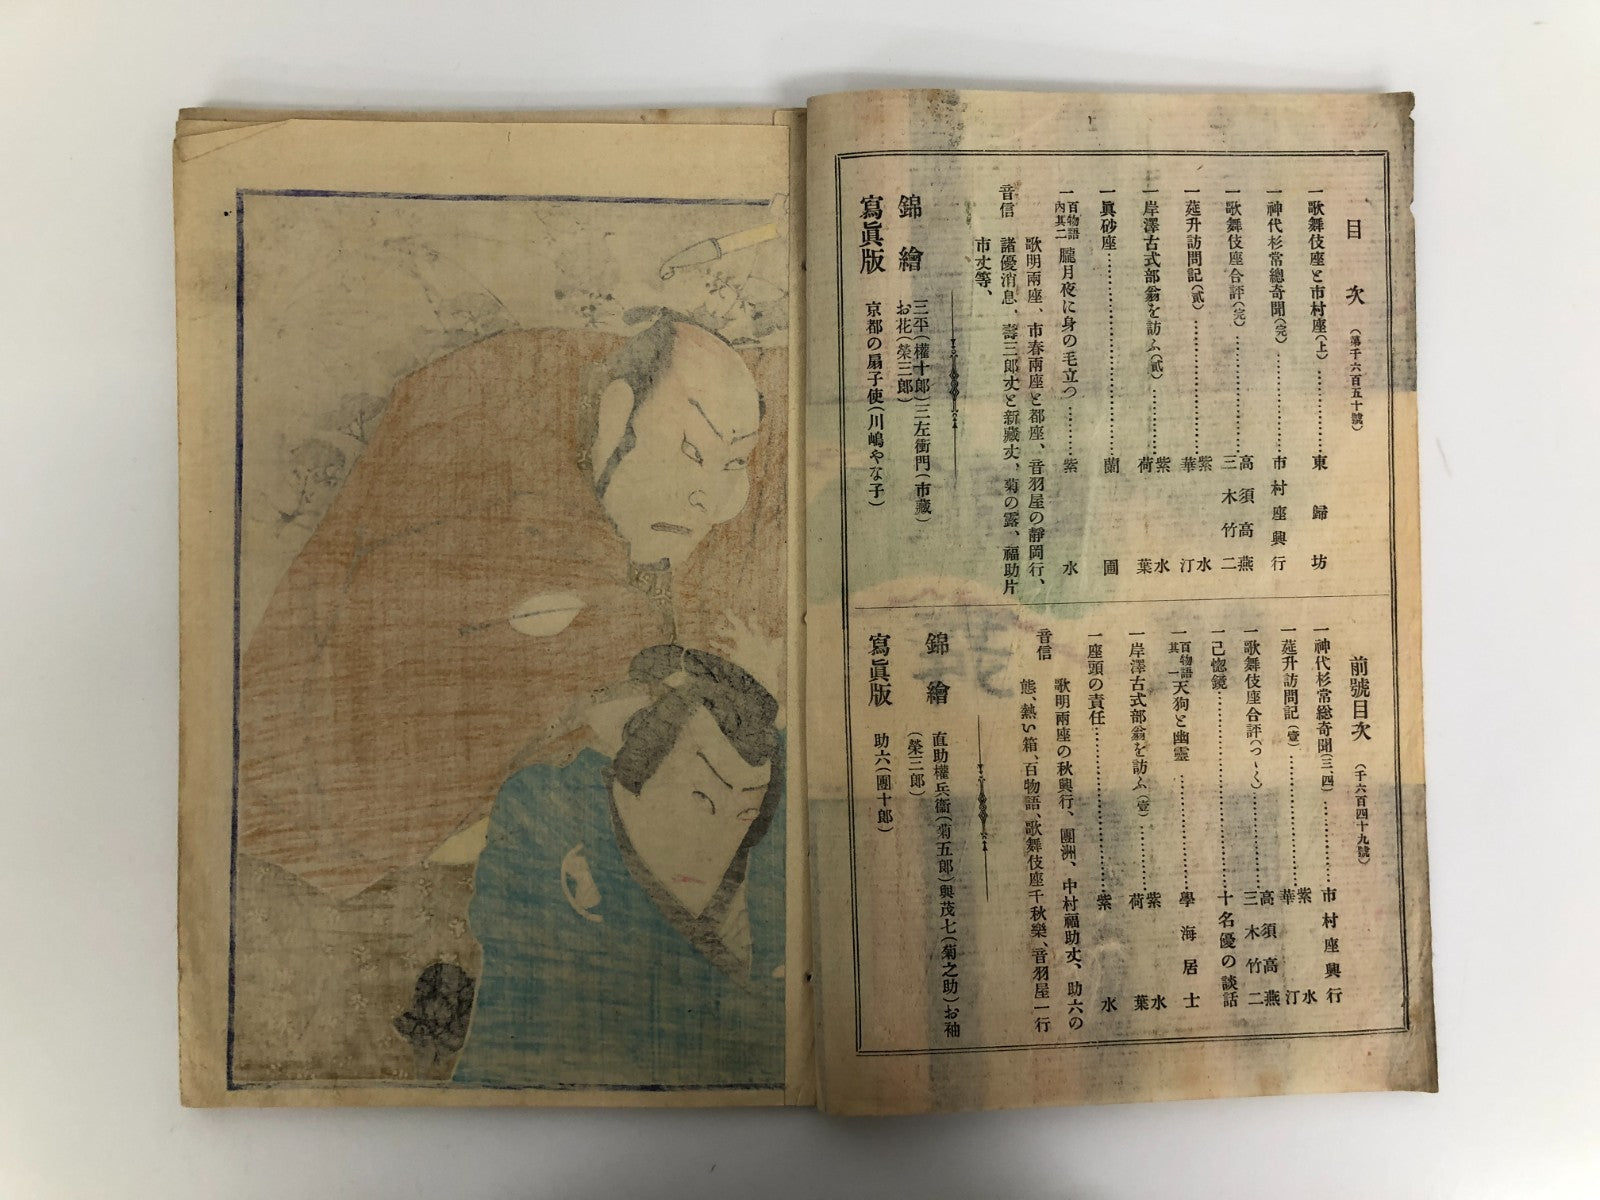 目次（第千六百五十號）
一歌舞伎座と市村座（上）…………東歸坊
一神代杉常總奇聞（完）…………市村座興行
一歌舞伎座合評（完）…………高須高燕 三木竹二
一莚升訪問記（貳）…………紫水 華汀
一岸澤古式部翁を訪ふ（貳）…………紫水 荷葉
一眞砂座…………蘭圃
一百物語內其二 朧月夜に身の毛立つ…………紫水
音信
歌明兩座、市春兩座と都座、音羽屋の靜岡行、
諸優消息、壽三郎丈と新藏丈、菊の露、福助片
市丈等、
錦繪
三平（權十郎）三左衞門（市藏）
お花（榮三郎）
寫眞版
京都の扇子使（川嶋やな子）
前號目次（千六百四十九號）
一神代杉常総奇聞（三、四）…………市村座興行
一莚升訪問記（壹）…………紫水 華汀
一歌舞伎座合評（つゞく）…………高須高燕 三木竹二
一己惚鏡…………十名優の談話
一百物語其一 天狗と幽靈…………學海居士
一岸澤古式部翁を訪ふ（壹）…………紫水 荷葉
一座頭の責任…………紫水
音信
歌明兩座の秋興行、團洲、中村福助丈、助六の
熊、熱い箱、百物語、歌舞伎座千秋樂、音羽屋一行
錦繪
直助權兵衞（菊五郎）與茂七（菊之助）お袖
（榮三郎）
寫眞版
助六（團十郎）